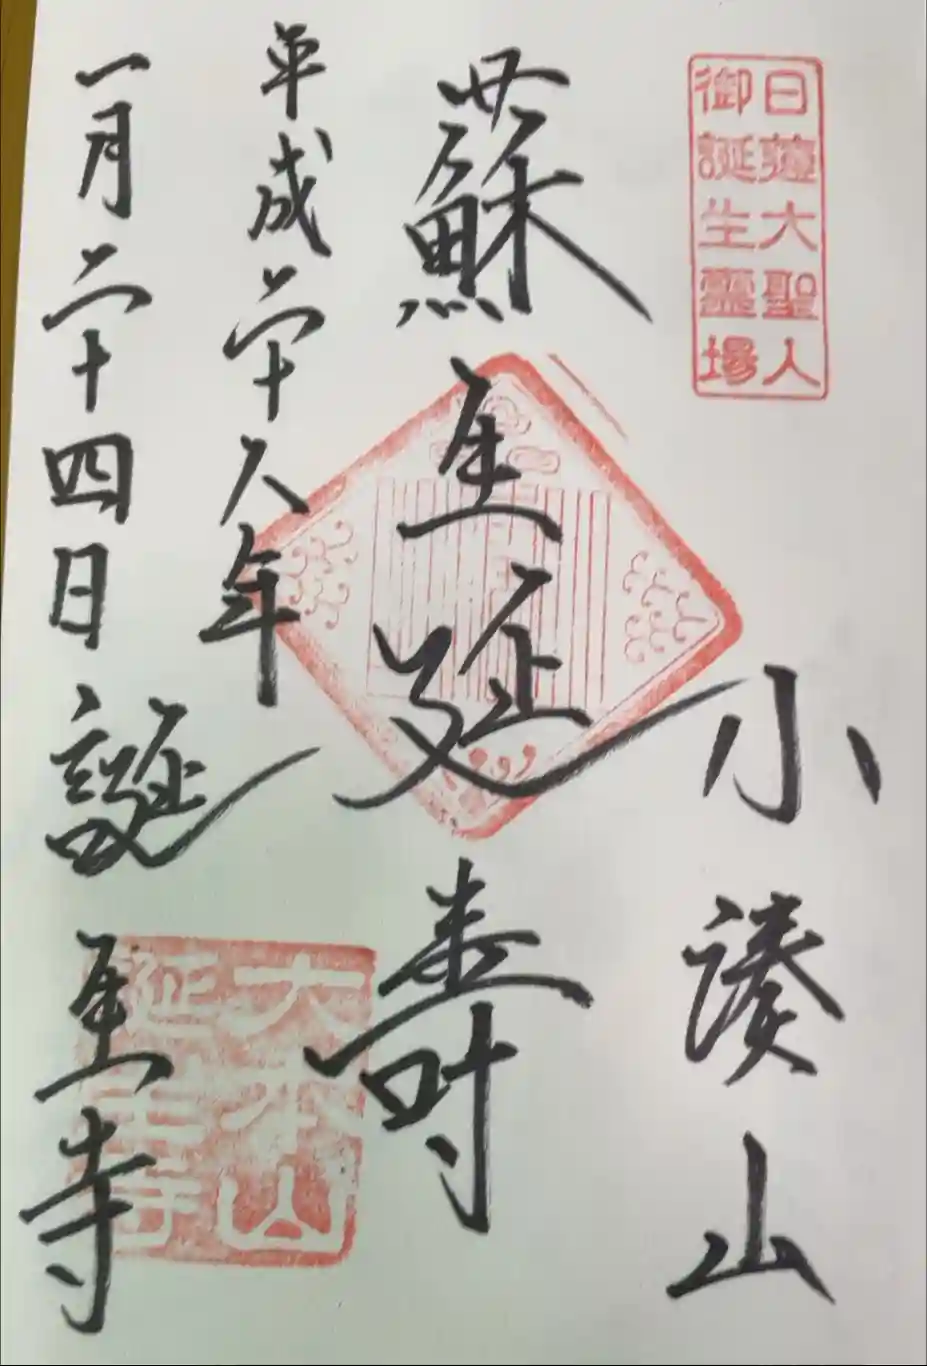 日蓮大聖人
御誕生霊場
小湊山
蘇生延壽
平成二十八年
一月二十四日
誕生寺
大本山
誕生寺